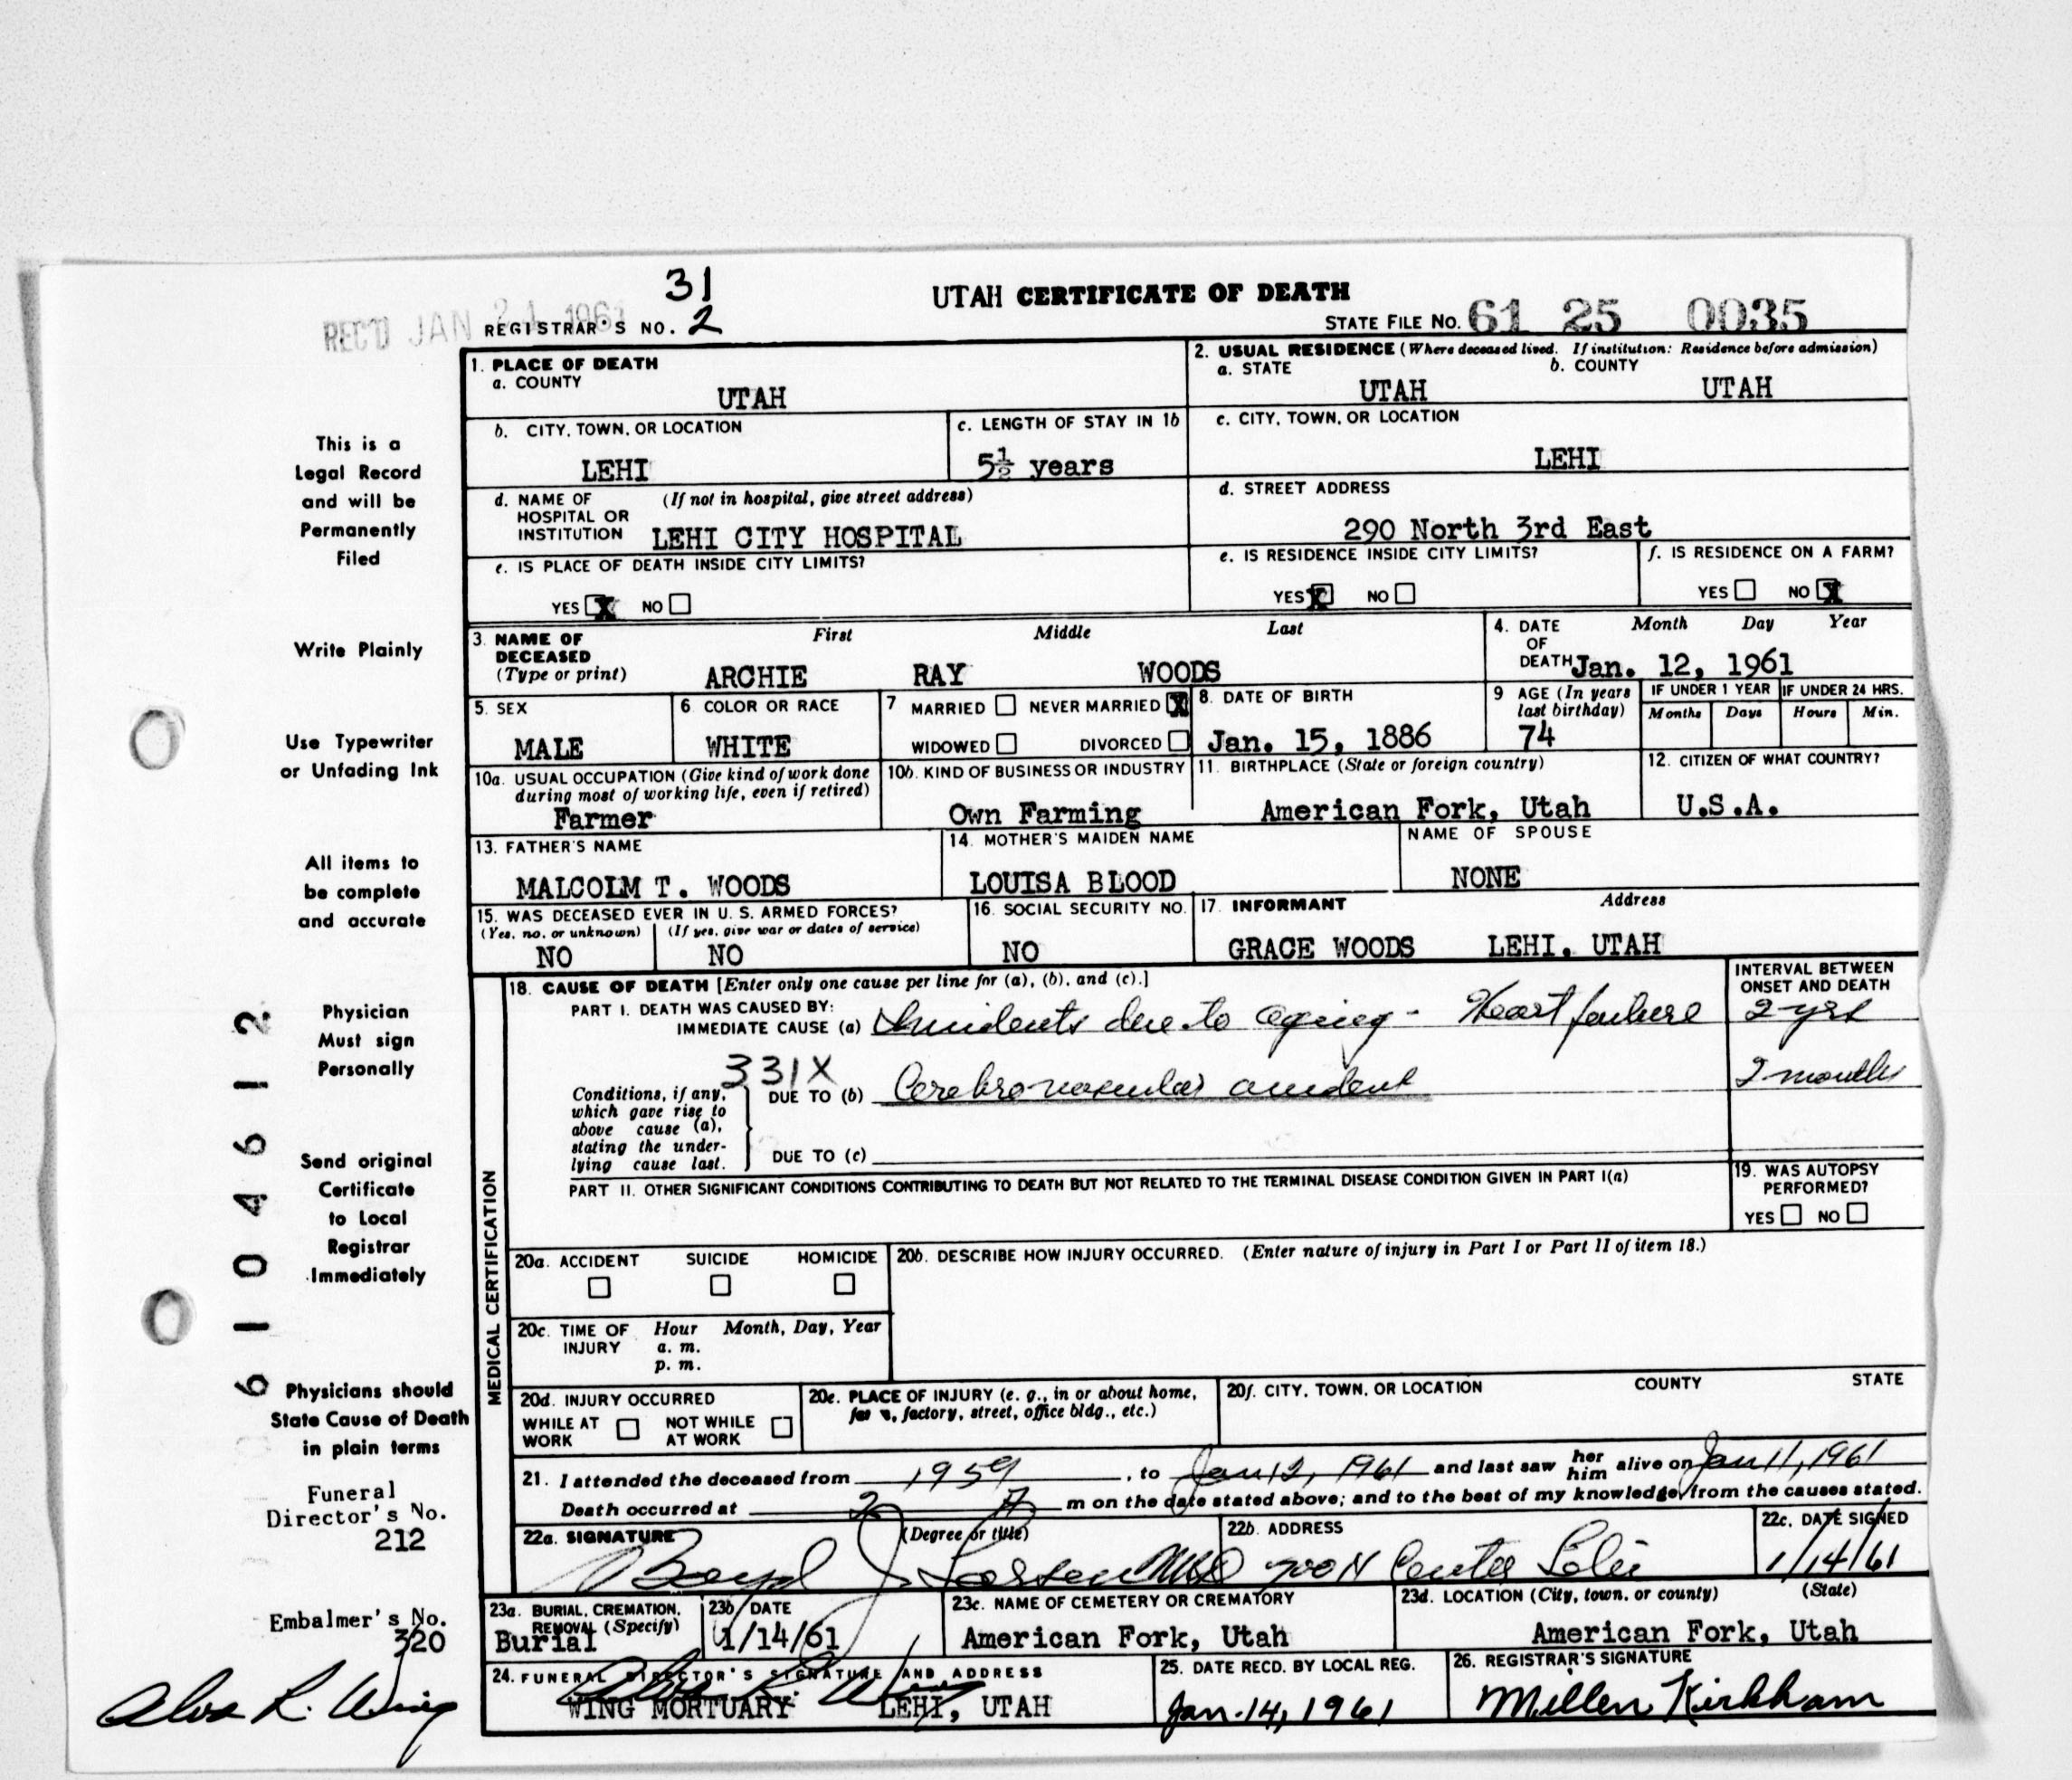 31
UTAH CERTIFICATE OF DEATH
REC'D JAN 24 1961 REGISTRAR'S NO. 2
STATE FILE No. 61 25 0035
1. PLACE OF DEATH
a. COUNTY
UTAH
2. USUAL RESIDENCE (Where deceased lived. If institution: Residence before admission)
a. STATE b. COUNTY
UTAH UTAH
b. CITY, TOWN, OR LOCATION
LEHI
c. LENGTH OF STAY IN 1b
5½ years
c. CITY, TOWN, OR LOCATION
LEHI
d. NAME OF (If not in hospital, give street address)
HOSPITAL OR
INSTITUTION LEHI CITY HOSPITAL
d. STREET ADDRESS
290 North 3rd East
e. IS PLACE OF DEATH INSIDE CITY LIMITS?
YES X NO
e. IS RESIDENCE INSIDE CITY LIMITS?
YES X NO
f. IS RESIDENCE ON A FARM?
YES NO X
3. NAME OF First Middle Last
DECEASED
(Type or print) ARCHIE RAY WOODS
4. DATE Month Day Year
OF
DEATH Jan. 12, 1961
5. SEX
MALE
6. COLOR OR RACE
WHITE
7 MARRIED NEVER MARRIED X
WIDOWED DIVORCED
8. DATE OF BIRTH
Jan. 15, 1886
9 AGE (In years
last birthday)
74
IF UNDER 1 YEAR IF UNDER 24 HRS.
Months Days Hours Min.
10a. USUAL OCCUPATION (Give kind of work done
during most of working life, even if retired)
Farmer
10b. KIND OF BUSINESS OR INDUSTRY
Own Farming
11. BIRTHPLACE (State or foreign country)
American Fork, Utah
12. CITIZEN OF WHAT COUNTRY?
U.S.A.
13. FATHER'S NAME
MALCOLM T. WOODS
14. MOTHER'S MAIDEN NAME
LOUISA BLOOD
NAME OF SPOUSE
NONE
15. WAS DECEASED EVER IN U. S. ARMED FORCES?
(Yes, no, or unknown) (If yes, give war or dates of service)
NO NO
16. SOCIAL SECURITY NO.
NO
17. INFORMANT Address
GRACE WOODS LEHI. UTAH
MEDICAL CERTIFICATION
18. CAUSE OF DEATH [Enter only one cause per line for (a), (b), and (c).]
INTERVAL BETWEEN
ONSET AND DEATH
PART I. DEATH WAS CAUSED BY:
IMMEDIATE CAUSE (a) due to ageing - Heart failure 2 yrs
331X
Conditions, if any,
which gave rise to
above cause (a),
stating the under-
lying cause last.
DUE TO (b) Cerebrovascular accident 2 months
DUE TO (c)
PART II. OTHER SIGNIFICANT CONDITIONS CONTRIBUTING TO DEATH BUT NOT RELATED TO THE TERMINAL DISEASE CONDITION GIVEN IN PART I(a)
19. WAS AUTOPSY
PERFORMED?
YES NO
20a. ACCIDENT SUICIDE HOMICIDE
20b. DESCRIBE HOW INJURY OCCURRED. (Enter nature of injury in Part I or Part II of item 18.)
20c. TIME OF Hour Month, Day, Year
INJURY a. m.
p. m.
20d. INJURY OCCURRED
WHILE AT NOT WHILE
WORK AT WORK
20e. PLACE OF INJURY (e. g., in or about home,
factory, street, office bldg., etc.)
20f. CITY, TOWN, OR LOCATION COUNTY STATE
21. I attended the deceased from 1959, to Jan 12, 1961 and last saw her him alive on Jan 11, 1961
Death occurred at 2 A m on the date stated above; and to the best of my knowledge, from the causes stated.
22a. SIGNATURE (Degree or title)
Boyd J Larsen MD
22b. ADDRESS
700 N Center Lehi
22c. DATE SIGNED
1/14/61
23a. BURIAL, CREMATION,
REMOVAL (Specify)
Burial
23b DATE
1/14/61
23c. NAME OF CEMETERY OR CREMATORY
American Fork, Utah
23d. LOCATION (City, town, or county) (State)
American Fork, Utah
24. FUNERAL DIRECTOR'S SIGNATURE AND ADDRESS
Alva R. Wing
WING MORTUARY LEHI, UTAH
25. DATE RECD. BY LOCAL REG.
Jan. 14, 1961
26. REGISTRAR'S SIGNATURE
Millen Kirkham
This is a
Legal Record
and will be
Permanently
Filed
Write Plainly
Use Typewriter
or Unfading Ink
All items to
be complete
and accurate
Physician
Must sign
Personally
Send original
Certificate
to Local
Registrar
Immediately
Physicians should
State Cause of Death
in plain terms
Funeral
Director's No.
212
Embalmer's No.
320
Alva R. Wing
61 04612